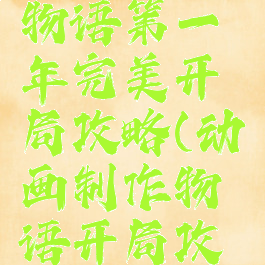 物语第一
年完美开
局攻略(动
画制作物
语开局攻